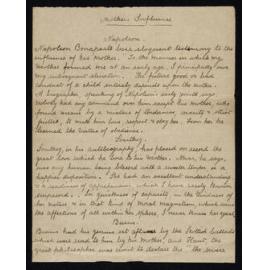 Mothers Influence
Napoleon.
Napoleon Bonaparte bears eloquent testimony to the
influence of his Mother. To the manner in which my
Mother formed me at an early age, I principally owe
my subsequent elevation. The future good or bad
conduct of a child entirely depends upon the mother.
A biographer speaking of Napoleon's early years says
nobody had any command over him except his mother, who
found means by a mixture of tenderness, severity & justice
to make him love, respect & obey her. From her he
learned the virtue of obedience.
Southey.
Southey, in his autobiography, has placed on record the
great love which he bore to his mother. Never, he says,
was any human being blessed with a sweeter temper or a
happier disposition. She had an excellent understanding
& a readiness of apprehension which I have rarely known
surpassed. In quickness of capacity, in the kindness of
her nature & in that kind of moral magnetism which wins
the affections of all within its sphere, I never knew her equal.
Burns.
Burns had his genius set aflame by the Scottish ballads
which were sung to him by his mother, and Kant, the
great philosopher was wont to declare that the